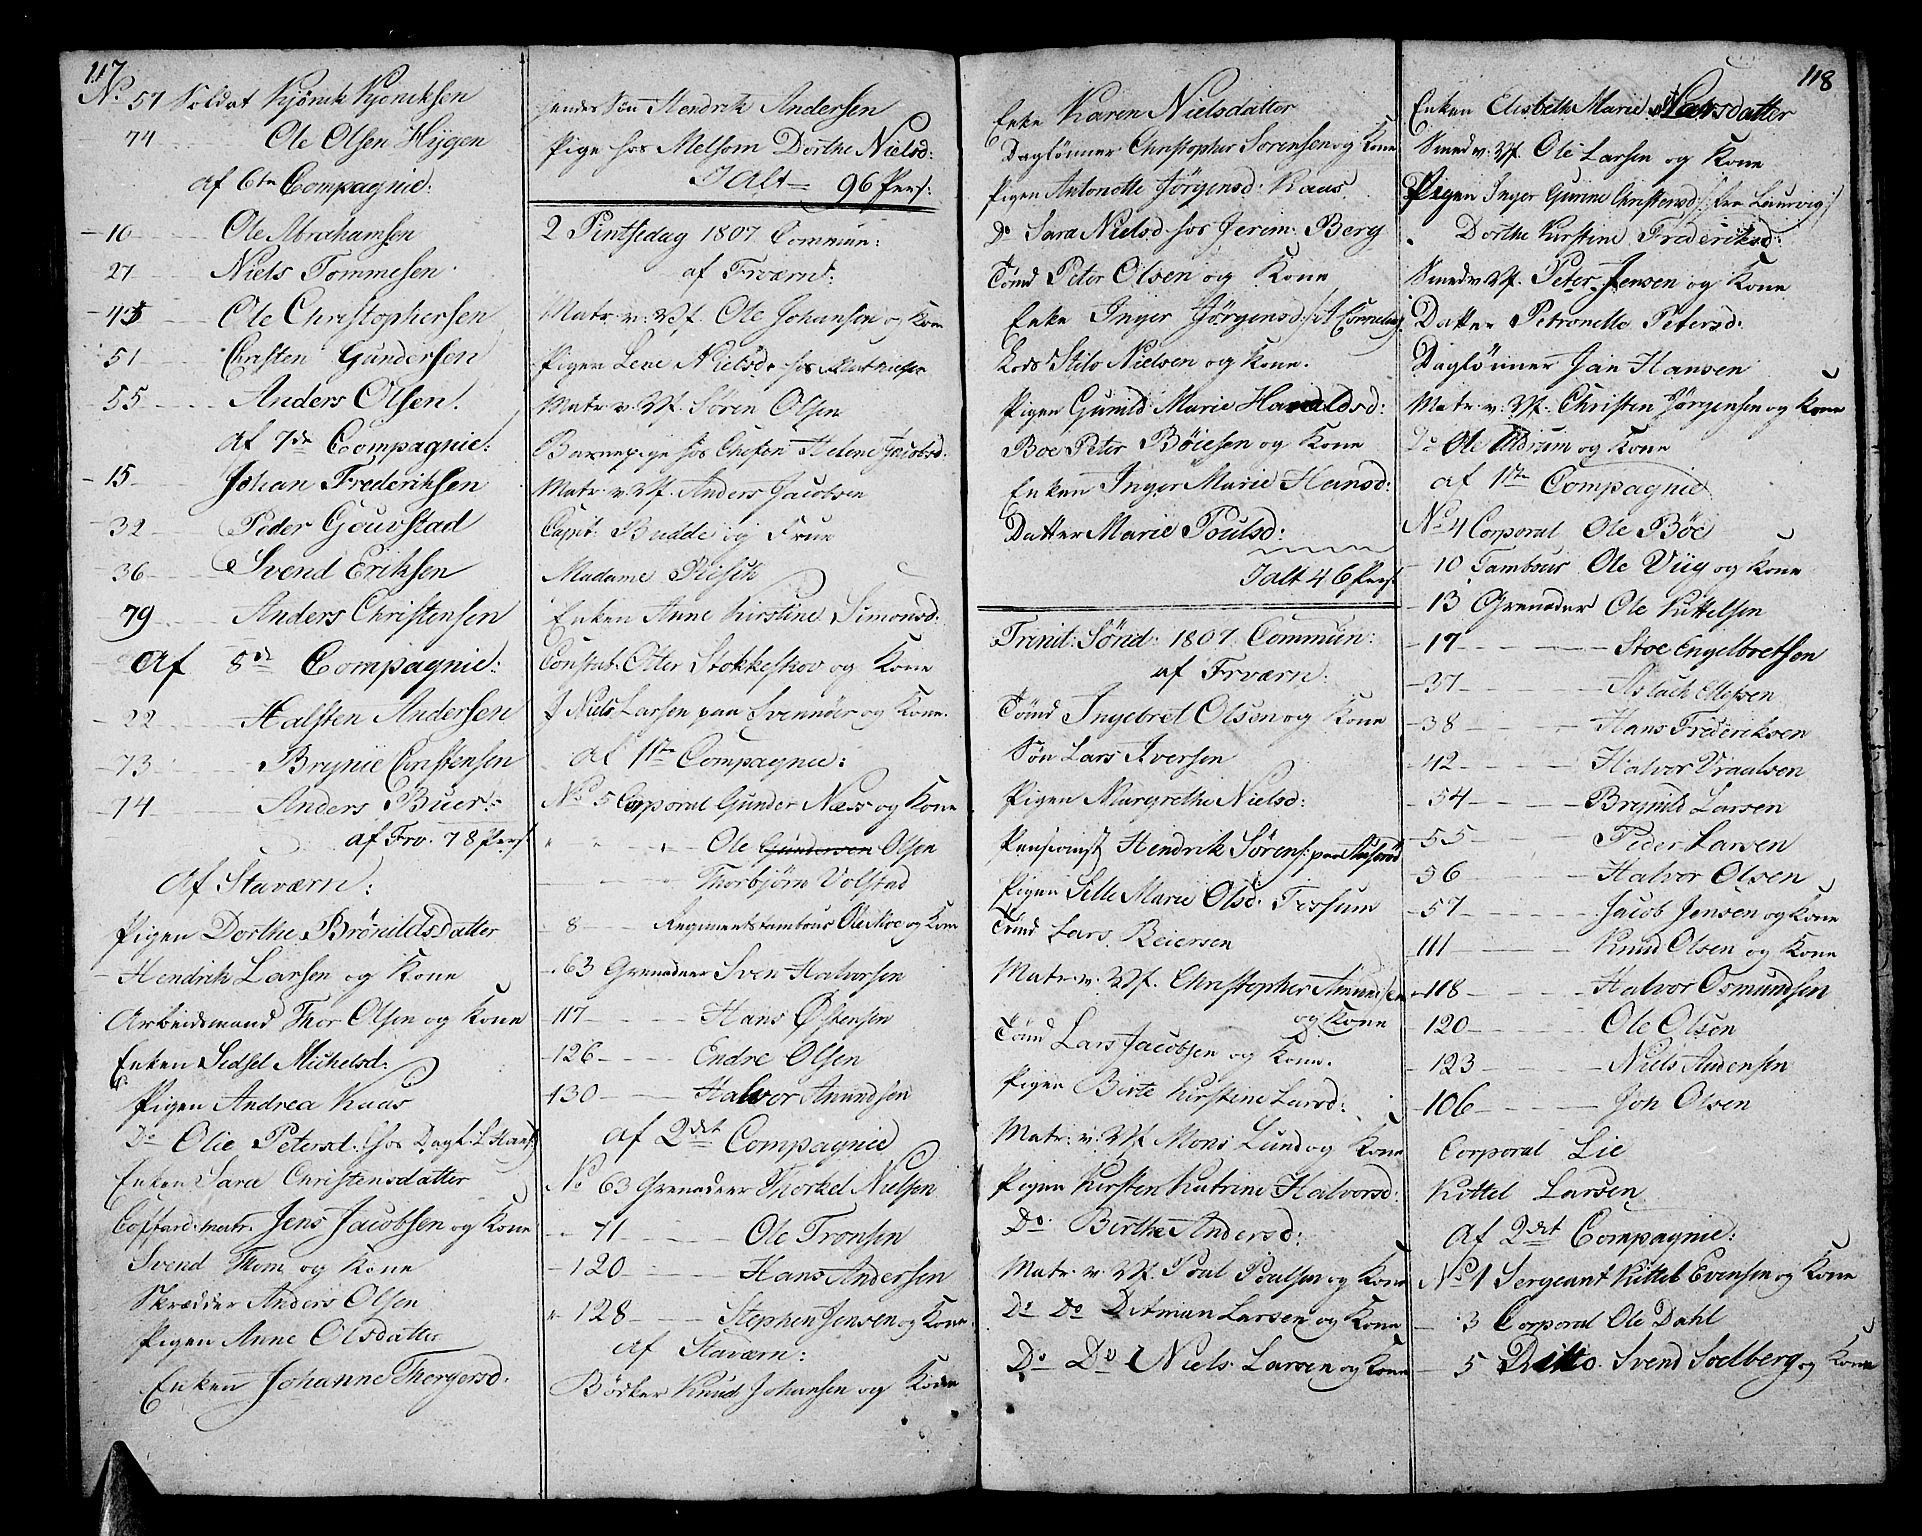 117
No. 57 Soldat Kjönik Kjöniksen
74 Ole Olsen Hÿggen
af 6te Compagnie:
10 Ole Abrahamsen
27 Niels Tommesen
45 Ole Christophersen
51 Christen Gundersen
55 Anders Olsen.
af 7de Compagnie:
15 Johan Frederiksen
32 Peder Gouvstad
36 Svend Eriksen
79 Anders Christensen
Af 8de Compagnie:
22 Halsten Andersen
73 Brynil Christensen
14 Anders Buer:
af Frv. 78 Pers:
Af Staværn:
Pigen Dorthe Brönildsdatter
Hendrik Larsen og Kone
Arbeidsmand Thor Olsen og Kone
Enken Sidsel Michelsd:
Pigen Andrea Kaas
Do Olie Petersd: (hos Dagl. L. Hans:)
Enken Sara Christensdatter
Coffard: matr. Jens Jacobsen og Kone
Svend Thom og Kone
Skrædder Anders Olsen
Pigen Anne Olsdatter
Enken Johanne Thorgersd.
hendes Sön Hendrik Andersen
Pige hos Melsom Dorthe Nielsd:
I Alt 96 Pers:
2 Pintsedag 1807 Commun:
af Frværn:
Matr. v: Vf. Ole Johansen og Kone
Pigen Lene Nielsd: hos
Matr. v: Vf. Sören Olsen
Barnepige hos Chefen Helene Jacobsd:
Matr. v: Vf. Anders Jacobsen
Capit: Budde og Frue
Madame Piisch
Enken Anne Kirstine Simonsd:
Constab: Otter Stokkeskov og Kone
J Niels Larsen paa Svennöer og Kone.
Af 1ste Compagnie:
No 5 Corporal Gunder Næss og Kone
" " " Ole Gundersen Olsen
Thorbjörn Volstad
8 Regimentstambour Ole Moe og Kone
63 Grenadeer Sven Halvorsen
117 Hans Östensen
126 Endre Olsen
130 Halvor Amundsen
af 2det Compagnie
No 63 Grenadeer Thorkel Nielsen
71 Ole Tronsen
120 Hans Andersen
128 Stephen Jensen og Kone
Af Staværn:
Bödker Knud Johansen og Kone
118
Enke Karen Nielsdatter
Daglönner Christopher Sörensen og Kone
Pigen Antonette Jörgensd: Kaas
Do Sara Nielsd hos Jerim: Berg
Tömd Peter Olsen og Kone
Enke Inger Jörgensd:
Lods Stilo Nielsen og Kone.
Pigen Gunild Marie Haraldsd:
Boe Peter Böiesen og Kone
Enken Inger Marie Hansd:
Datter Marie Poulsd:
I alt 46 Pers:
Trinit: Sönd: 1807 Commun:
af Frværn:
Tömd Ingebret Olsen og Kone
Sön Lars Iversen
Pigen Margrethe Nielsd:
Pensionist Hendrik Sörens: paa
Pigen Sille Marie Olsd: Tessum
Tömd Lars Reiersen
Matr: v: Vf. Christopher Amundsen
og Kone
Tömd Lars Jacobsen og Kone.
Pigen Birte Kirstine Larsd:
Matr: v: Vf Mons Lund og Kone
Pigen Kirsten Katrine Halvorsd:
Do. Birthe Andersd:
Matr: v: Vf. Poul Poulsen og Kone
Do Do Ditman Larsen og Kone
Do Do Niels Larsen og Kone
Enken Elisbeth Marie Larsdatter
Smed v: Vf. Ole Larsen og Kone
Pigen Inger Gurine Christensd: /: fra Laurvig :/
Dorthe Kirstine Frederiksd:
Smed v: Vf. Peter Jensen og Kone
Datter Petronelle Petersd:
Daglönner Jan Hansen
Matr. v: Vf: Christen Jörgensen og Kone
Do Ole Aldrum og Kone
af 1ste Compagnie
No 4 Corporal Ole Böe
10 Tambour Ole Viig og Kone
13 Grenadeer Ole Kittelsen
17 Stoe Engelbretsen
37 Aslach Ellefsen
38 Hans Frideriksen
42 Halvor Vraalsen
54 Brynild Larsen
55 Peder Larsen
56 Halvor Olsen
57 Jacob Jensen og Kone
111 Knud Olsen og Kone
118 Halvor Osmundsen
120 Ole Olsen
123 Niels Andersen
106 Joh Olsen
Corporal Lie
Kittel Larsen
Af 2det Compagnie:
No 1 Sergeant Kittel Evensen og Kone
3 Corporal Ole Dahl
5 Ditto. Svend Soelberg og Kone